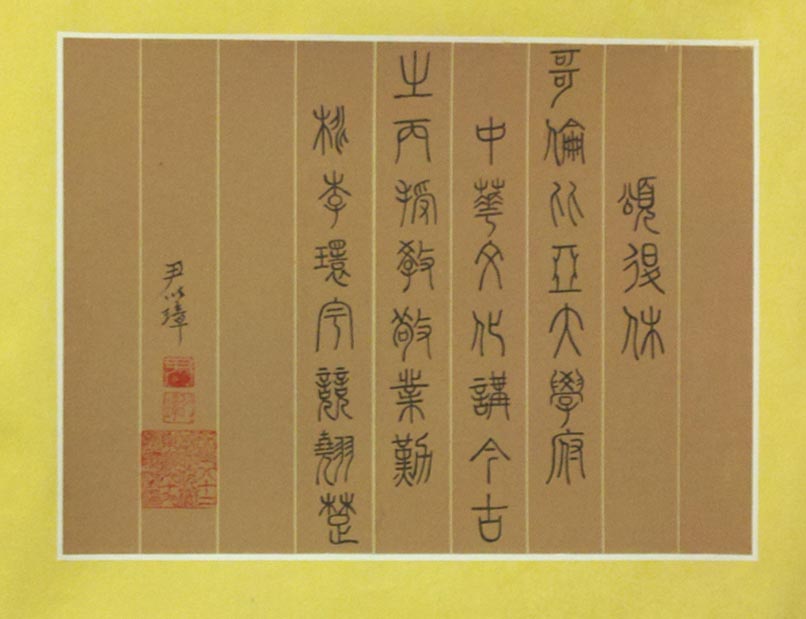 頌退休
哥倫比亞大學府
中華文化講今古
之丙授教敬業勤
桃李環宇競翹楚
尹以璋